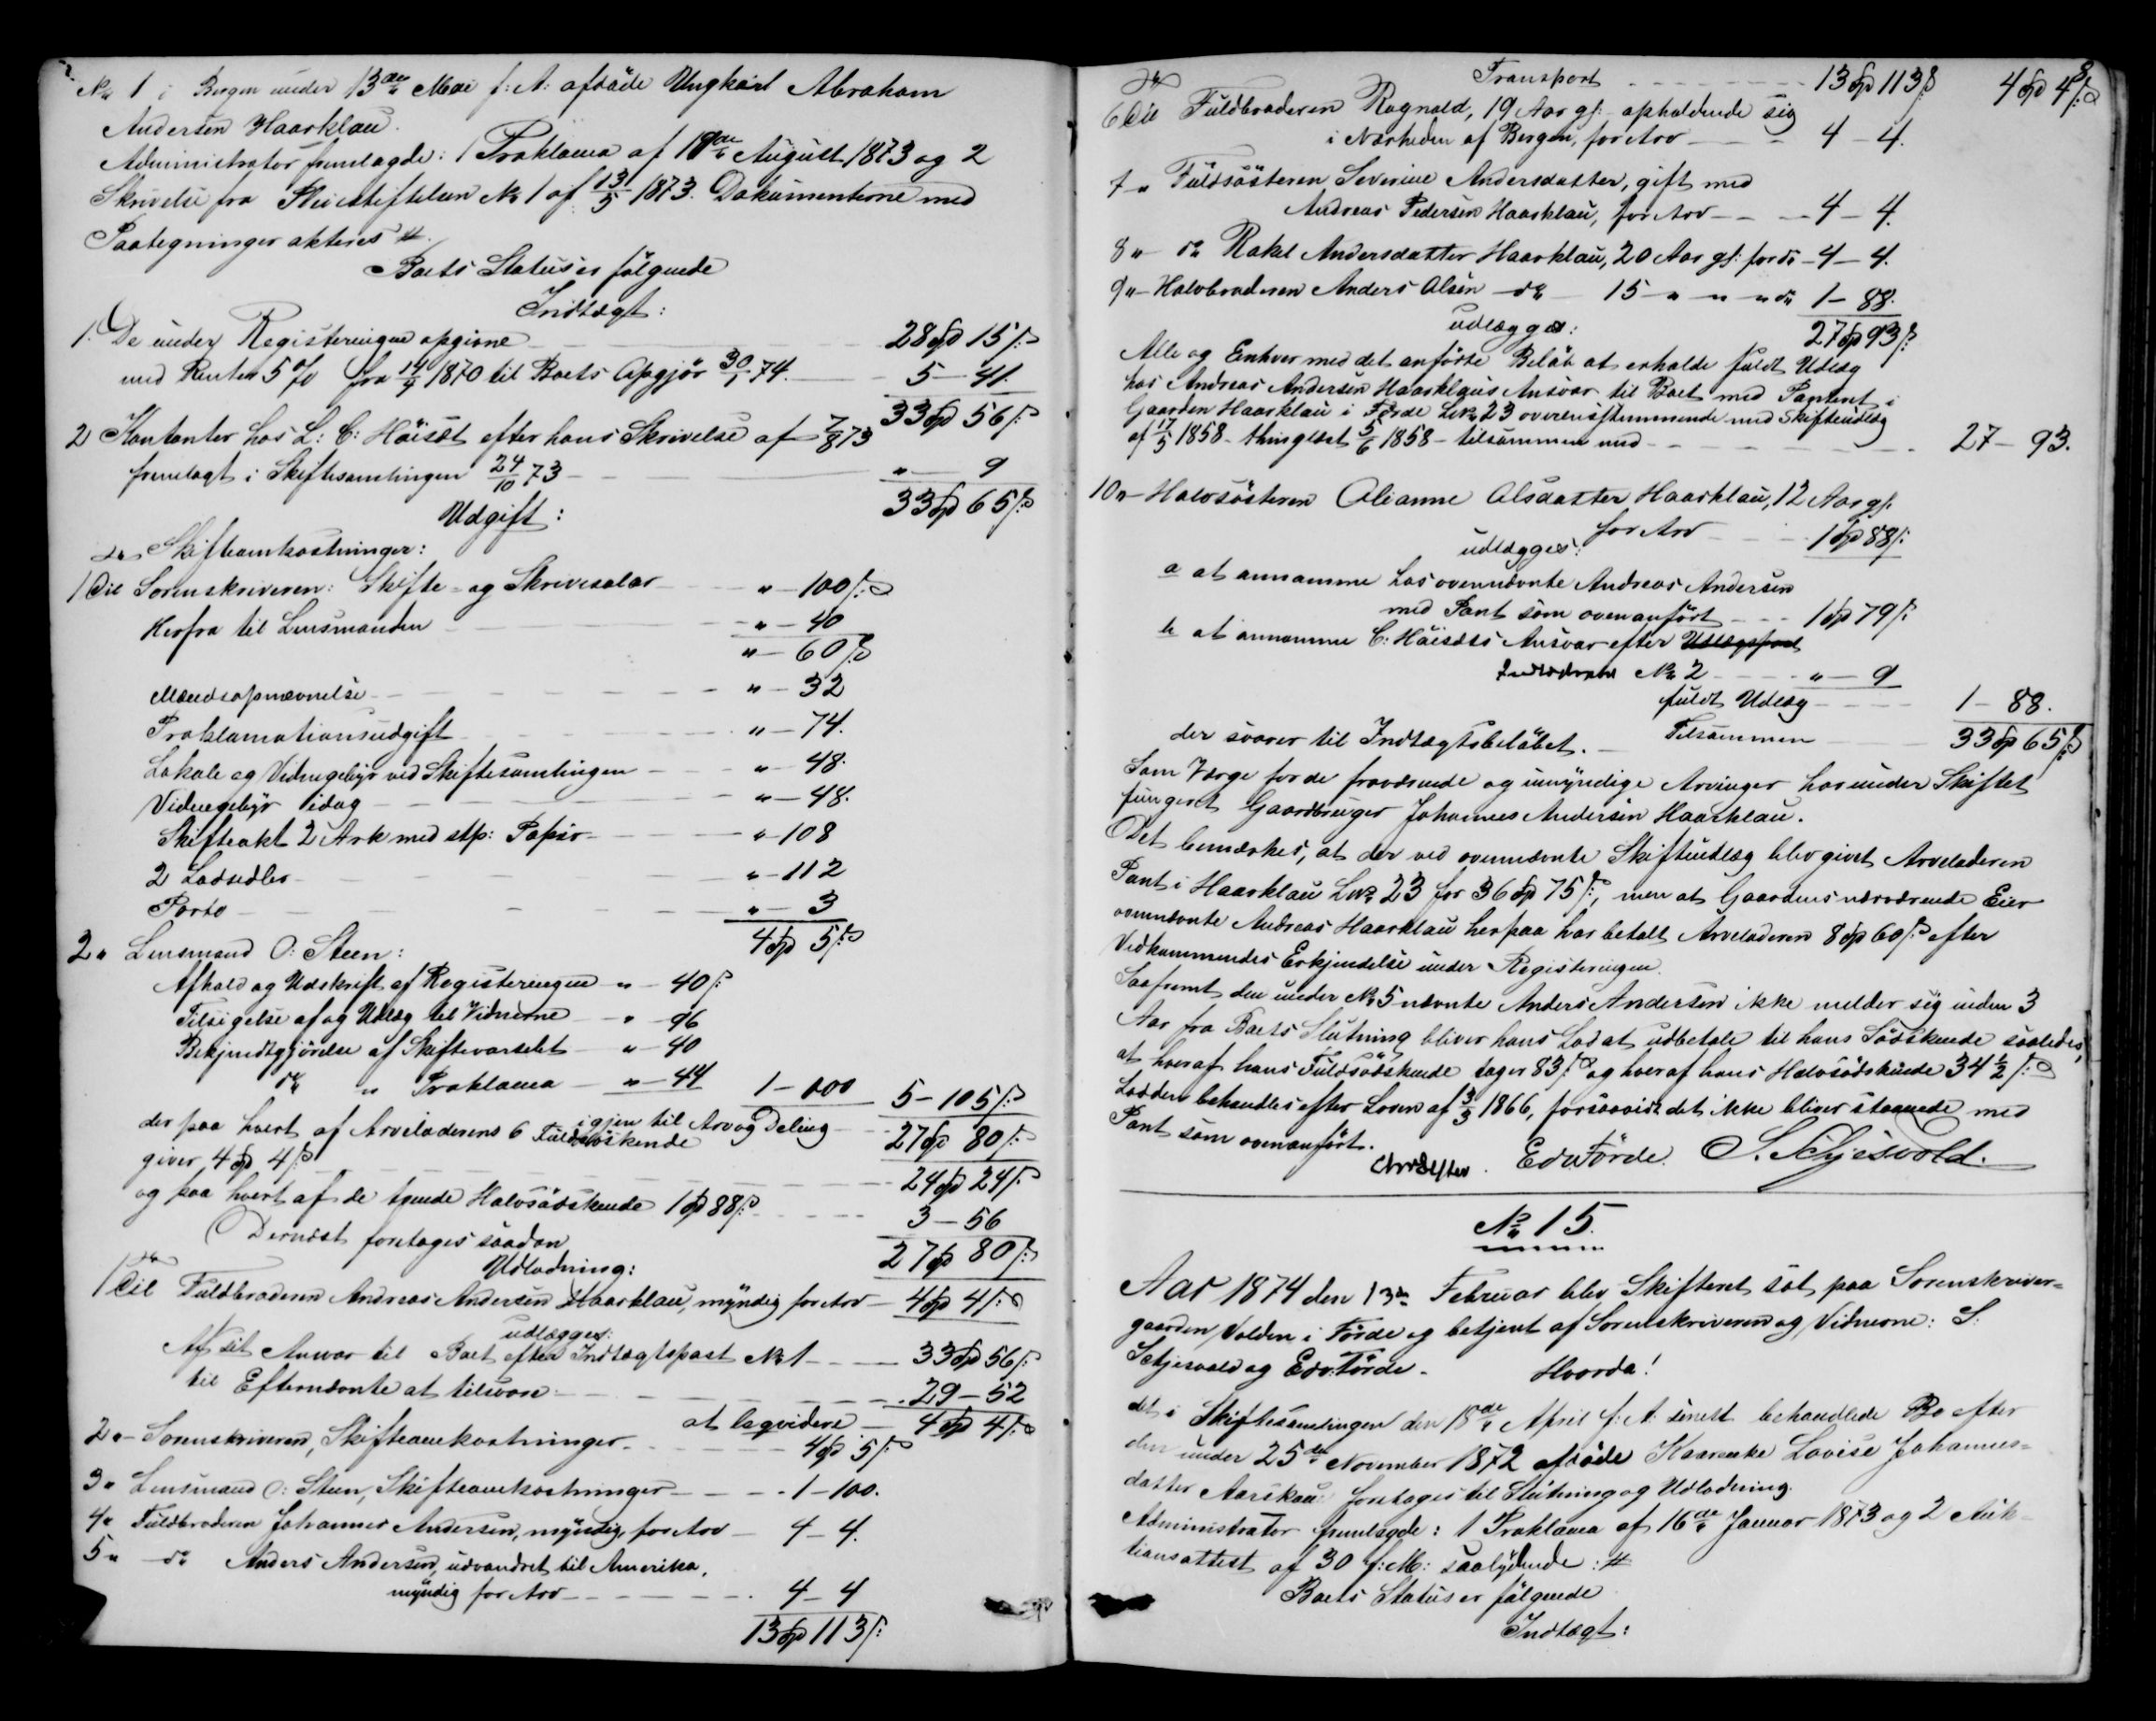 No 1 i Bergen under 13de Mai f: A: afdøde Ungkarl Abraham
Andersen Haarklau.
Administrator fremlagde: 1 Proklama af 19de August 1873 og 2
Skrivelse fra No 1 af 13/5 1873. Dokumenterne med
Paategninger akteres #.
Boets Status er følgende
Indtægt:
1. De under Registeringen opgivne 28 Spd 15 s
med Renter 5 % fra 14/4 1870 til Boets Opgjør 30/1 74. 5 - 41.
33 Spd 56 s
2 Kontanter hos L: C: Høisæt efter hans Skrivelse af 7/8 73
fremlagt i Skiftesamlingen 24/10 73 - " - 9
33 Spd 65 s
Udgift:
Skifteomkostninger:
1 Til Sorenskriveren: Skifte- og Skrivesalær " - 100 s
Herfra til Lensmanden " - 40
" - 60 s
Mændsopnævnelse " - 32
Proklamationsudgift " - 74.
Lokale og Vidnegebyr ved Skiftesamlingen " - 48.
Vidnegebyr idag " - 48.
Skifteakt 2 Ark med stp: Papir " - 108
2 Lodsedler " - 112
Porto " - 3
4 Spd 5 s
2 " Lensmand O: Steen:
Afhold og Udskrift af Registeringen " - 40 s
Tilsigelse af og Udlæg til Vidnerne " - 96
Bekjendtgjørelse af Skiftevarselet " - 40
do " Proklama " - 44 1 - 100 5 - 105 s
igjen til Arv og Deling 27 Spd 80 s
der paa hvert af Arveladerens 6 Fuldsødskende
giver 4 Spd 4 s 24 Spd 24 s
og paa hvert af de tvende Halvsødskende 1 Spd 88 s 3 - 56
27 Spd 80 s
Dernæst foretages saadan
Udlodning:
1 Til Fuldbroderen Andreas Andersen Haarklau, myndig for Arv 4 Spd 4 s
udlægges:
Af sit Ansvar til Boet efter Indtægtspost No 1 33 Spd 56 s
til Efternævnte at tilsvare 29 - 52
at leqvidere 4 Spd 4 s
2 " Sorenskriveren, Skifteomkostninger 4 Spd 5 s
3 " Lensmand O: Steen, Skifteomkostninger 1 - 100.
4 " Fuldbroderen Johannes Andersen, myndig, for Arv 4 - 4.
5 " do Anders Andersen, udvandret til Amerika,
myndig for Arv 4 - 4
13 Spd 113 s
Transport 13 Spd 113 s 4 Spd 4 s
6 Til Fuldbroderen Ragnald, 19 Aar gl: opholdende sig
i Nærheden af Bergen, for Arv 4 - 4.
7 " Fuldsøsteren Severine Andersdatter, gift med
Andreas Pedersen Haarklau, for Arv 4 - 4.
8 " do Rakel Andersdatter Haarklau, 20 Aar gl: for do 4 - 4.
9 " Halvbroderen Anders Olsen do 15 " " " do 1 - 88.
27 Spd 93 s
udlægges:
Alle og Enhver med det anførte Beløb at erholde fuldt Udlæg
hos Andreas Andersen Haarklaus Ansvar til Boet med Panteret i
Gaarden Haarklau i Førde LNo 23 overensstemmende med Skifteudlæg
af 17/5 1858 - thinglæst 5/6 1858 - tilsammen med 27 - 93.
10 " Halvsøsteren Olianne Olsdatter Haarklau, 12 Aar gl.
for Arv 1 Spd 88 s
udlægges:
a at annamme hos ovennævnte Andreas Andersen
med Pant som ovenanført 1 Spd 79 s
b at annamme C: Høisæts Ansvar efter Udlægspost
No 2 " - 9
fuldt Udlæg 1 - 88.
der svarer til Indtægtsbeløbet. Tilsammen 33 Spd 65 s
Som Værge for de fraværende og umyndige Arvinger har under Skiftet
fungeret Gaardbruger Johannes Andersen Haarklau.
Det bemærkes, at der ved ovennævnte Skifteudlæg blev givet Arveladeren
Pant i Haarklau LNo 23 for 36 Spd 75 s, men at Gaardens nuværende Eier
ovennævnte Andreas Haarklau herpaa har betalt Arveladeren 8 Spd 60 s efter
Vedkommendes Erkjendelse under Registeringen.
Saafremt den under No 5 nævnte Anders Andersen ikke melder sig inden 3
Aar fra Boets Slutning bliver hans Lod at udbetale til hans Sødskende saaledes,
at hver af hans Fuldsødskende tager 83 s og hver af hans Halvsødskende 34 1/2 s
Lodden behandles efter Loven af 3/3 1866, forsaavidt det ikke bliver staaende med
Pant som ovenanført.
Edv Førde. S. Schjesvold.
No 15.
Aar 1874 den 13de Februar blev Skifteret sat paa Sorenskriver-
gaarden Volden i Førde og betjent af Sorenskriveren og Vidnerne: S.
Schjesvold og Edv: Førde. Hvorda!
det i Skiftesamlingen den 18de April f: A: senest behandlede Bo efter
den under 25de November 1872 afdøde Lovise Johannes-
datter Aarskau foretages til Slutning og Udlodning.
Administrator fremlagde: 1 Proklama af 16de Januar 1873 og 2 Auk-
tionsattest af 30 f: M: saalydende: #
Boets Status er følgende
Indtægt: